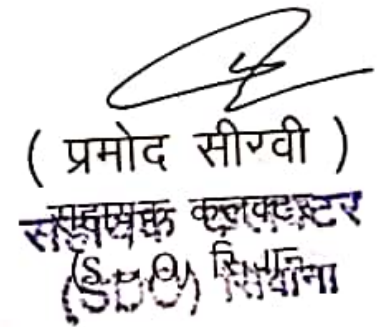 ( प्रमोद सीरवी )
सहायक कलक्टर
(SDO) सिवाना